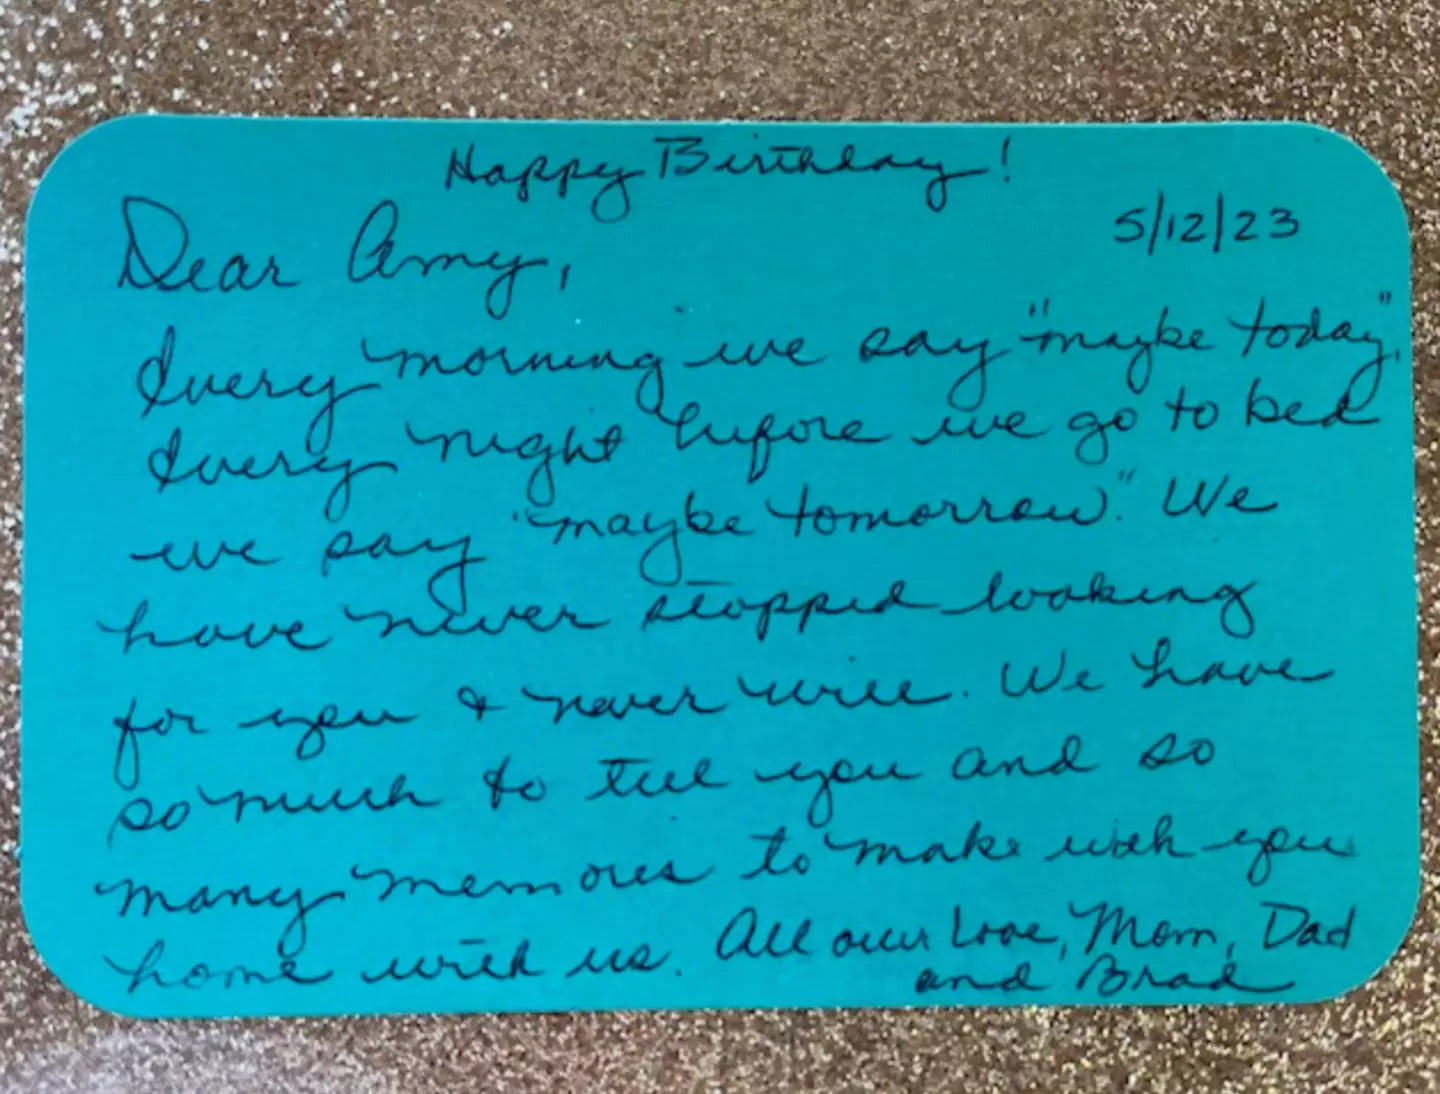 Happy Birthday!
5/12/23
Dear Amy,
Every morning we say "maybe today",
Every night before we go to bed
we say "maybe tomorrow". We
have never stopped looking
for you & never will. We have
so much to tell you and so
many memories to make with you
home with us. All our Love, Mom, Dad
and Brad